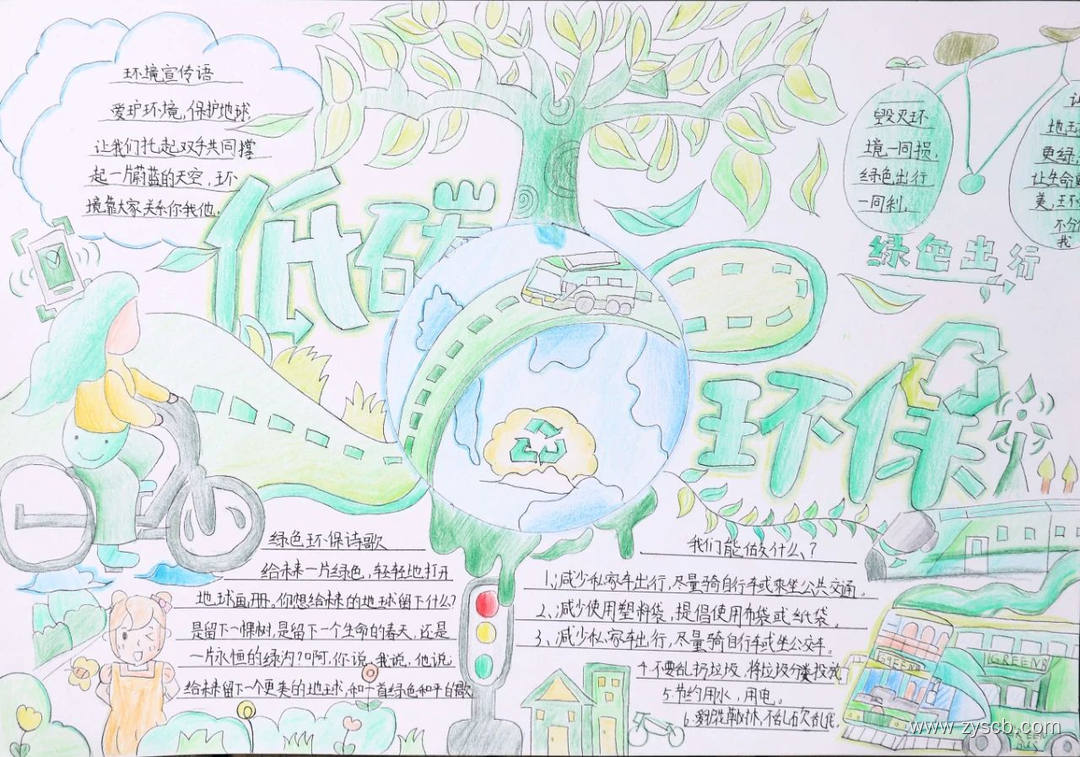 环境宣传语
爱护环境,保护地球
让我们托起双手共同撑
起一片蔚蓝的天空,环
境靠大家关系你我他.
低碳
毁灭环
境一同损,
绿色出行
一同利.
更绿,
让生命
美,环
不分
我
绿色出行
环保
绿色环保诗歌
给未来一片绿色,轻轻地打开
地球画册,你想给未来的地球留下什么?
是留下一棵树,是留下一个生命的春天,还是
一片永恒的绿沟?啊,你说,我说,他说
给未来留下一个更美的地球,和一首绿色和平的歌
我们能做什么?
1、减少私家车出行,尽量骑自行车或乘坐公共交通。
2、减少使用塑料袋,提倡使用布袋或纸袋。
3、减少私家车出行,尽量骑自行车或坐公交车。
4.不要乱扔垃圾,将垃圾分类投放
5.节约用水,用电。
GREEN8
GREEN8
GREEN
BUS
www.zyscb.com